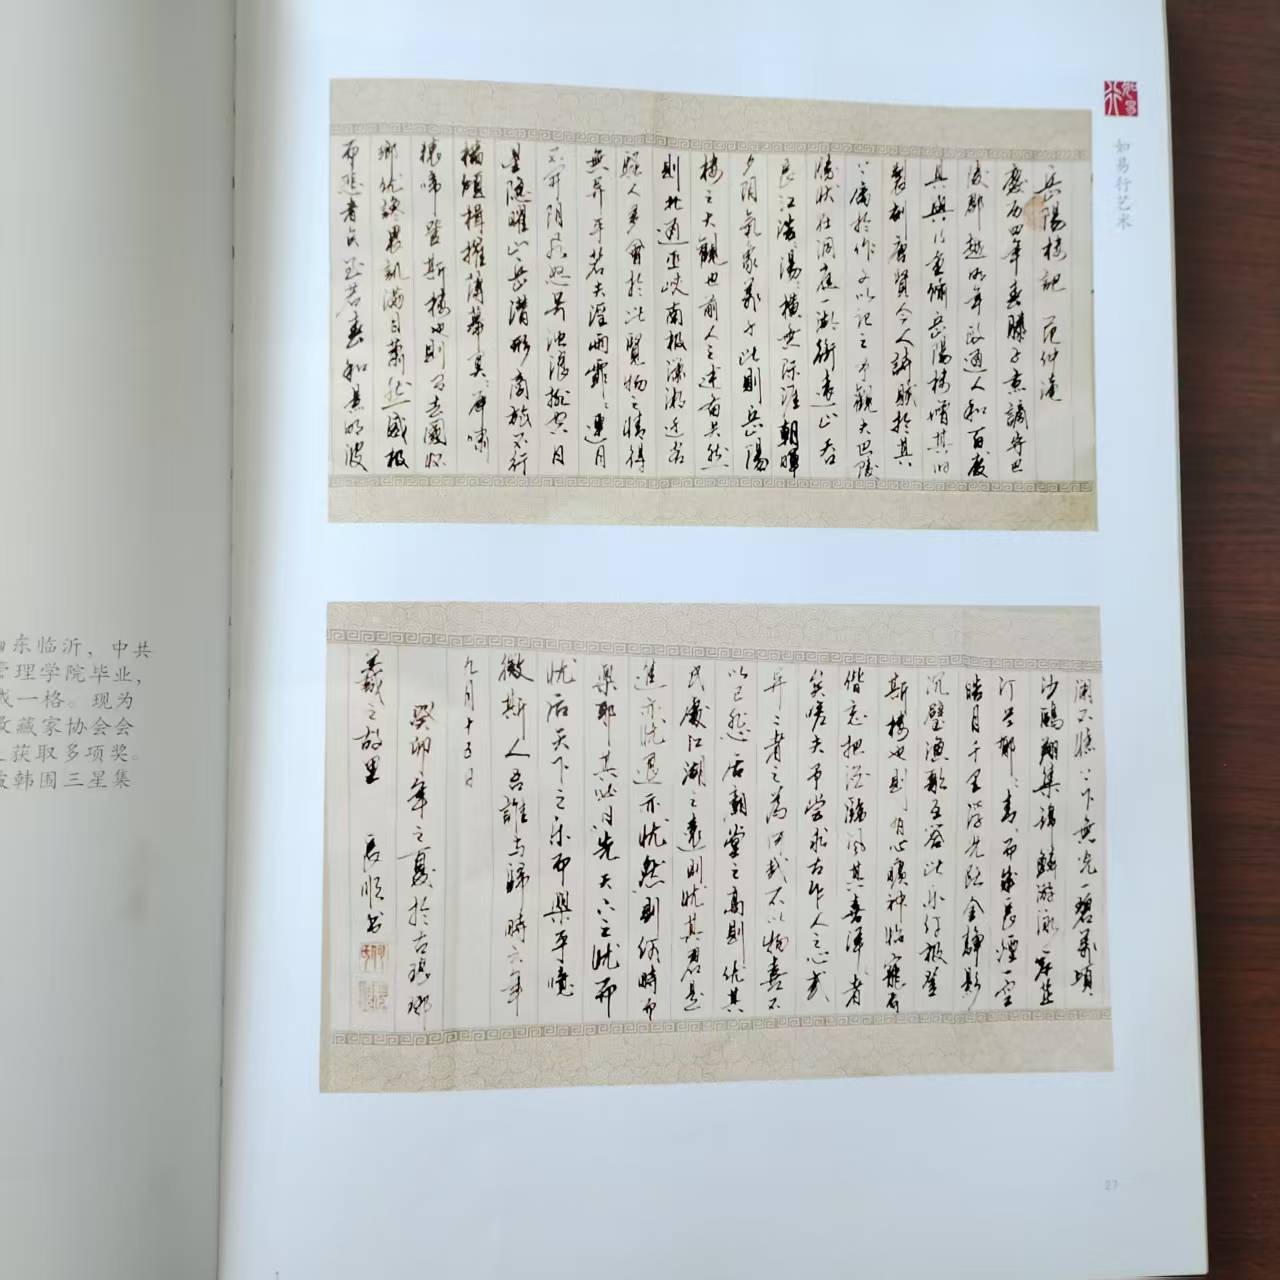 东临沂，中共
管理学院毕业，
成一格。现为
收藏家协会会
获取多项奖。
韩国三星集
如易行
如易行艺术
岳陽樓記 范仲淹
慶历四年春滕子京謫守巴
陵郡越明年政通人和百廢
具興乃重脩岳陽樓增其旧
製刻唐賢今人詩賦於其
上属於作文以记之予觀夫巴陵
勝状在洞庭一湖銜遠山吞
長江浩、湯、横无际涯朝暉
夕阴氣象萬千此則岳陽
樓之大觀也前人之述俻矣然
則北通巫峽南極瀟湘迁客
騷人多會於此覽物之情得
無异乎若夫淫雨霏、連月
不开阴風怒号浊浪排空日
星隐曜山岳潜形商旅不行
檣傾楫摧薄暮冥、虎嘯
猿啼登斯樓也則有去國怀
鄉忧讒畏譏滿目萧然感极
而悲者矣至若春和景明波
瀾不惊上下天光一碧萬頃
沙鷗翔集錦鱗游泳岸芷
汀兰郁、青、而或長煙一空
皓月千里浮光跃金静影
沉璧渔歌互答此乐何极登
斯樓也則有心曠神怡寵辱
偕忘把酒臨风其喜洋、者
矣嗟夫予尝求古仁人之心或
异二者之為何哉不以物喜不
以己悲居廟堂之高則忧其
民處江湖之遠則忧其君是
進亦忧退亦忧然則何時而
樂耶其必曰先天下之忧而
忧后天下之乐而樂乎噫
微斯人吾誰与歸時六年
九月十五日
癸卯年之夏於古琅琊
羲之故里 長順书
27